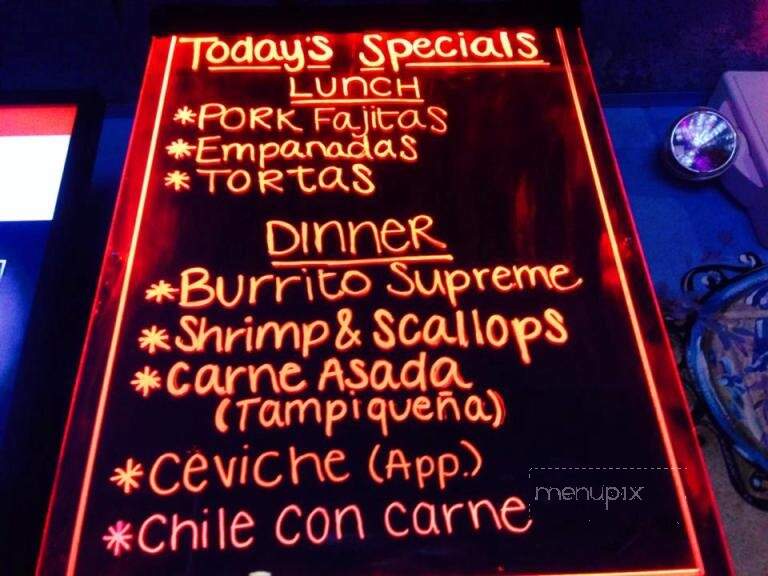 Today's Specials
LUNCH
*PORK Fajitas
*Empanadas
*TORTAS
DINNER
*Burrito Supreme
*Shrimp & Scallops
*Carne Asada
(Tampiqueña)
*Ceviche (App.)
*Chile con carne
menupix